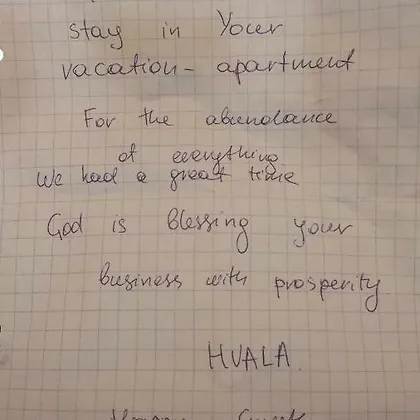 stay in Your
vacation- apartment
For the abundance
of everything
We had a great time
God is Blessing your
business with prosperity
HVALA.